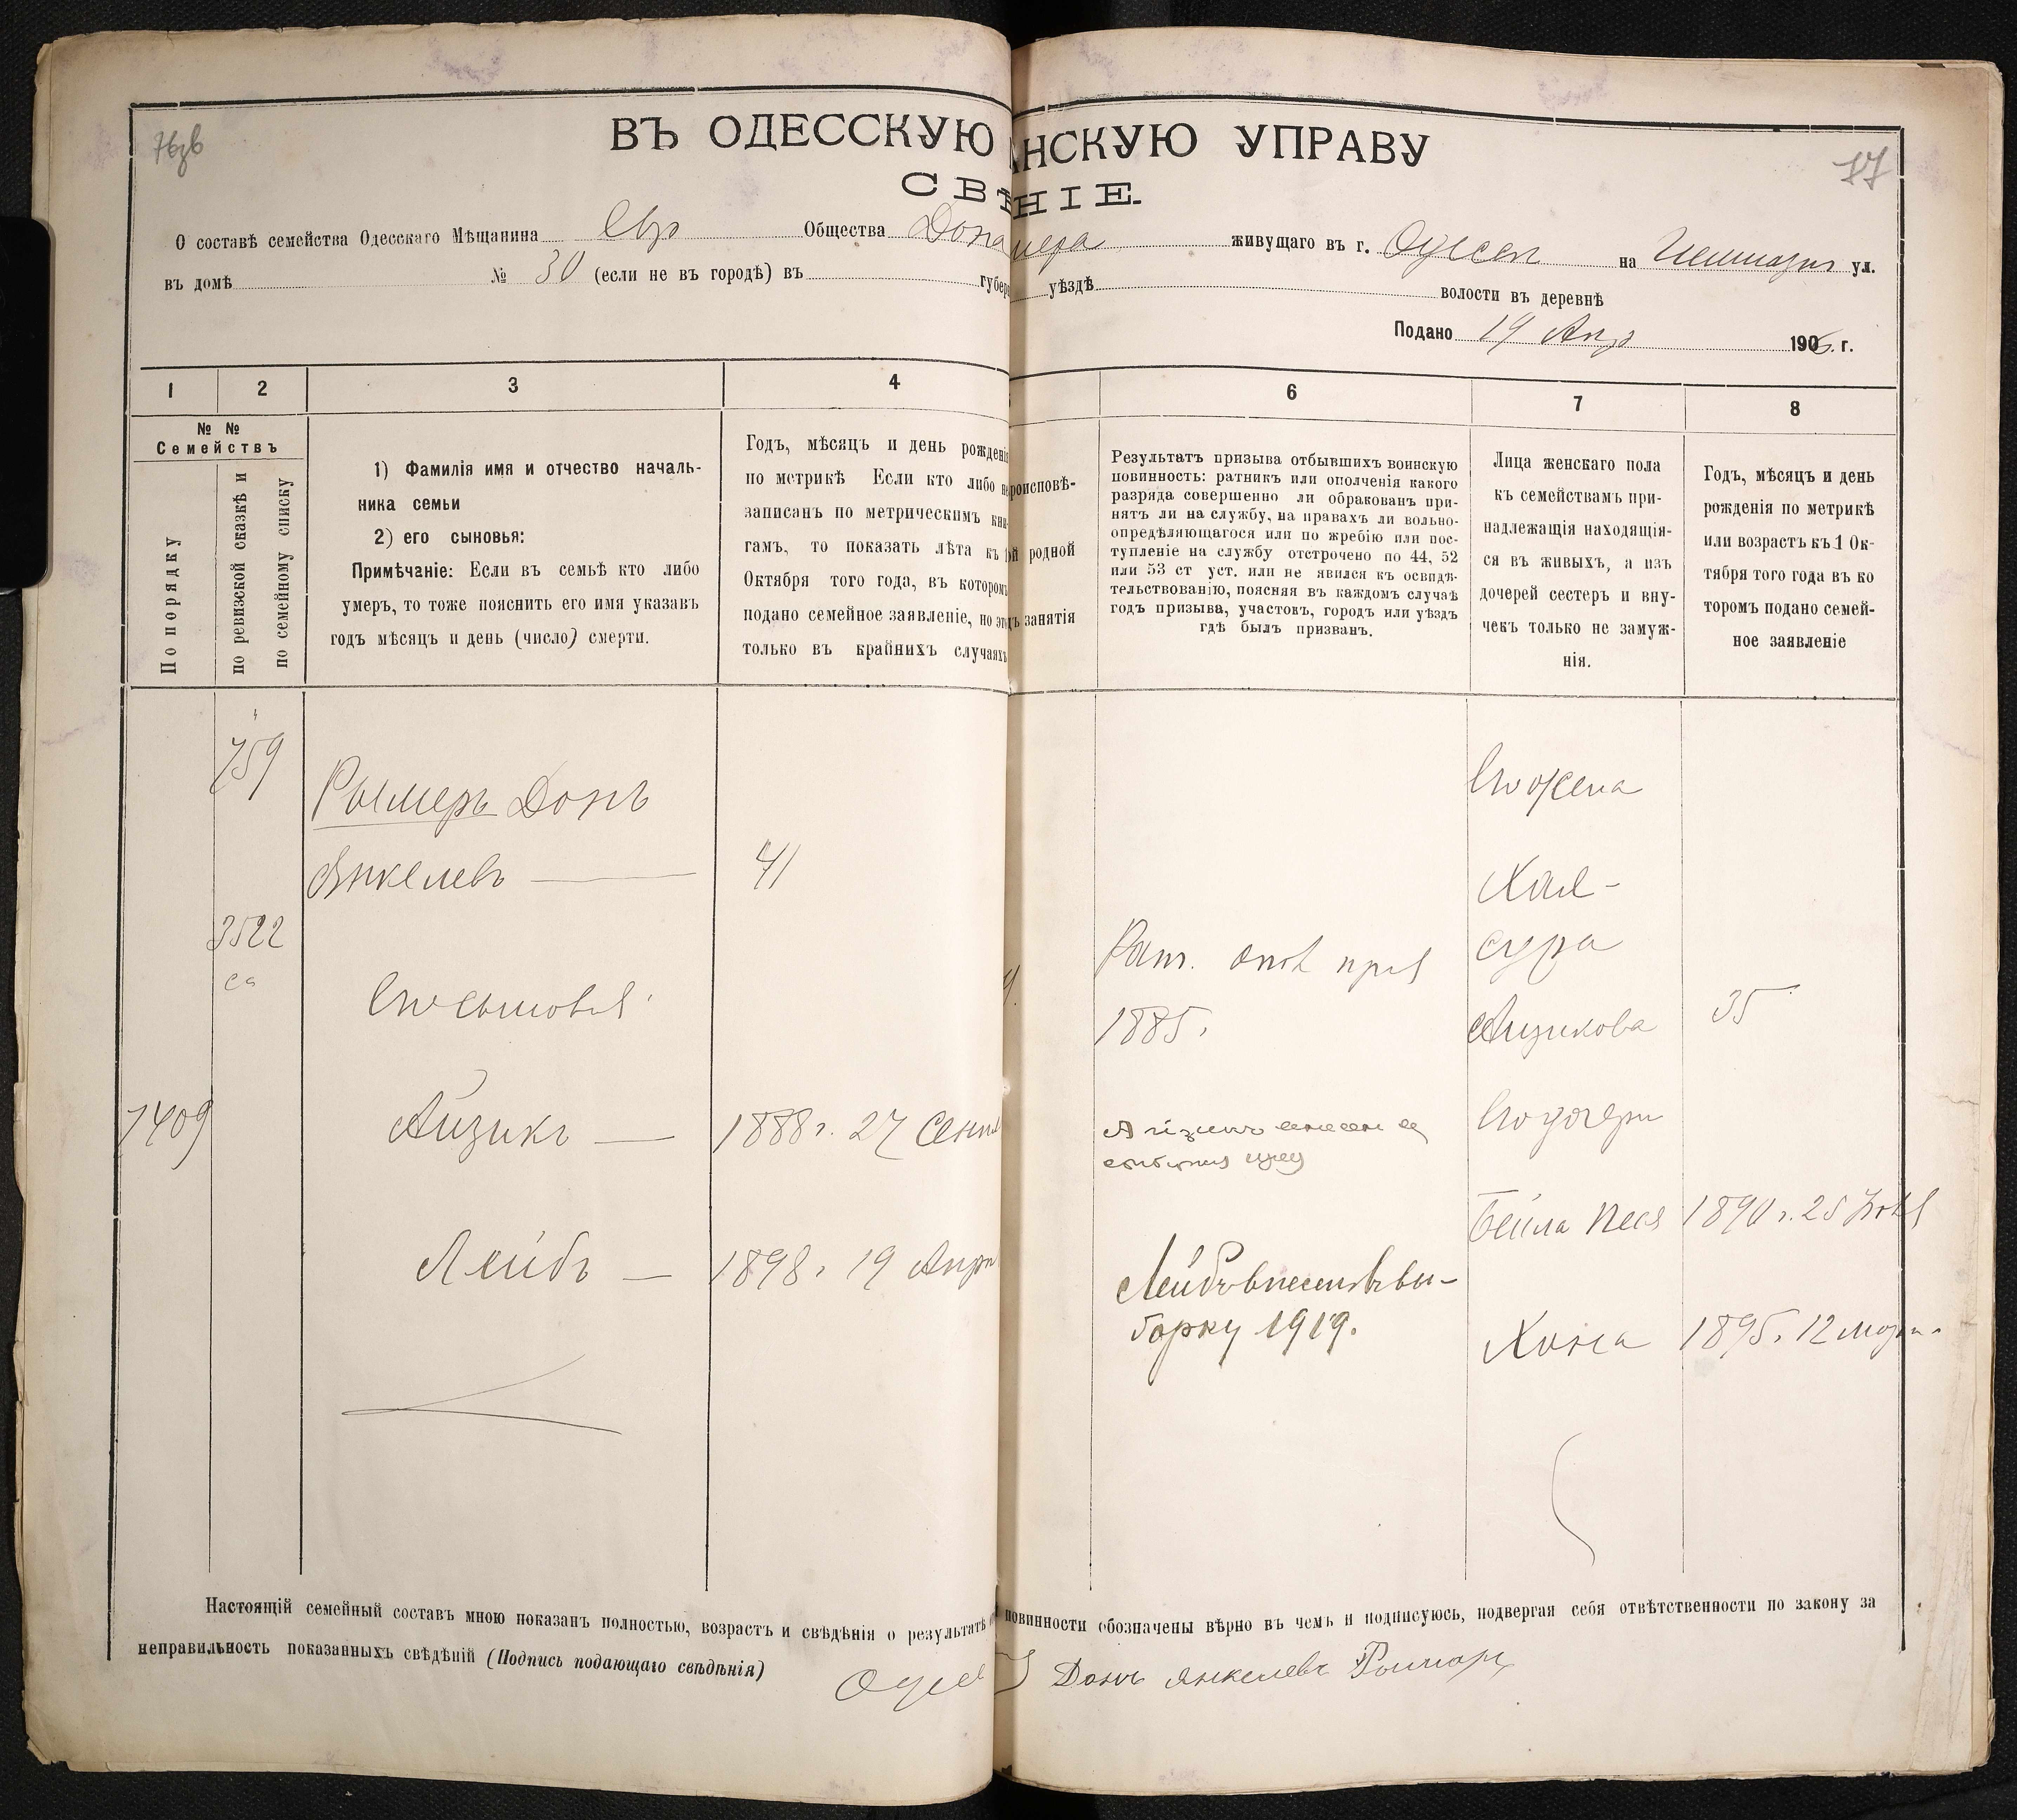 ВЪ ОДЕССКУЮ АНСКУЮ УПРАВУ
СВѢ НІЕ.
77
О составѣ семейства Одесскаго Мѣщанина Евр Общества Дона мера живущаго въ г. Одессѣ на ул.
въ домѣ № 30 (если не въ городѣ) въ губер уѣздѣ волости въ деревнѣ
Подано 19 Апр 1906. г.
1 2 3 4 6 7 8
№ №
Семействъ
По порядку
по ревизской сказкѣ и
по семейному списку
1) Фамилія имя и отчество началь-
ника семьи
2) его сыновья:
Примѣчаніе: Если въ семьѣ кто либо
умеръ, то тоже пояснить его имя указавъ
годъ мѣсяцъ и день (число) смерти.
Годъ, мѣсяцъ и день рожденія
по метрикѣ Если кто либо не
записанъ по метрическимъ кни-
гамъ, то показать лѣта къ 1
Октября того года, въ которомъ
подано семейное заявленіе, но это
только въ крайнихъ случаяхъ
роисповѣ-
й родной
ъ занятія
Результатъ призыва отбывшихъ воинскую
повинность: ратникъ или ополченія какого
разряда совершенно ли обракованъ при-
нятъ ли на службу, на правахъ ли вольно-
опредѣляющагося или по жребію или пос-
тупленіе на службу отстрочено по 44, 52
или 53 ст уст. или не явился къ освидѣ-
тельствованію, поясняя въ каждомъ случаѣ
годъ призыва, участокъ, городъ или уѣздъ
гдѣ былъ призванъ.
Лица женскаго пола
къ семействамъ при-
надлежащія находящія-
ся въ живыхъ, а изъ
дочерей сестеръ и вну-
чекъ только не замуж-
нія.
Годъ, мѣсяцъ и день
рожденія по метрикѣ
или возрастъ къ 1 Ок-
тября того года въ ко
торомъ подано семей-
ное заявленіе
759
Рымеръ Донъ
Его жена
Янкелевъ 41
Хая-
3522
са
Рат. опол
Сура
Его сыновья:
1885.
Айзикова 35
7409 Айзикъ 1888 г. 27 Сент
Его дочери
Бейла Песя 1890 г. 25
Лейбъ 1898 г 19 Апрѣ
Лейбъ внесенъ въ вы-
борку 1919.
Хона 1895. 12 Март.
Настоящій семейный составъ мною показанъ полностью, возрастъ и свѣдѣнія о результатѣ повинности обозначены вѣрно въ чемъ и подписуюсь, подвергая себя отвѣтственности по закону за
неправильность показанныхъ свѣдѣній (Подпись подающаго свѣдѣнія)
Донъ Янкелевъ